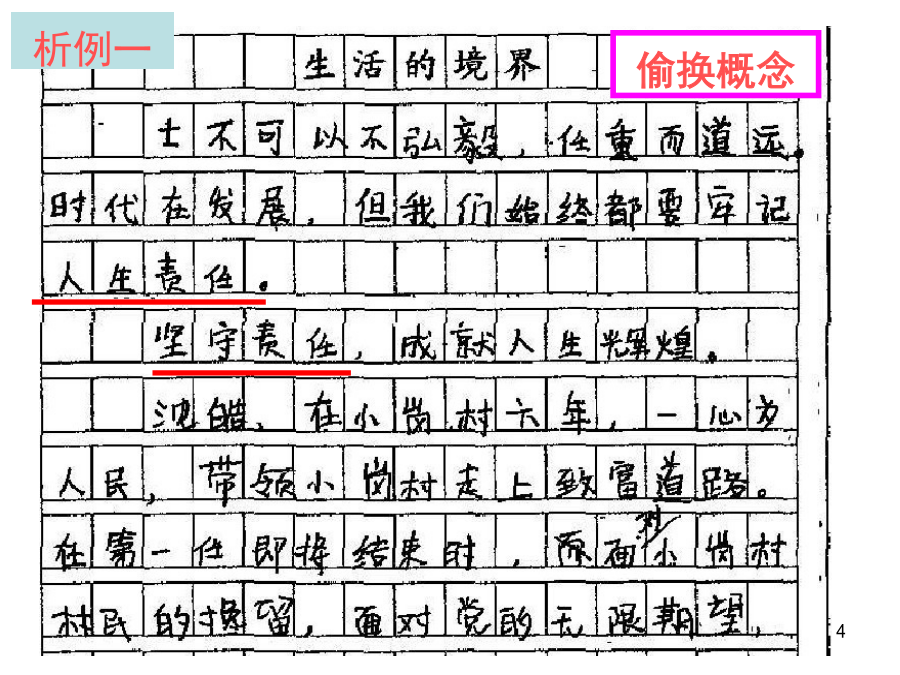 析例一
生活的境界
偷换概念
士不可以不弘毅，任重而道远。
时代在发展，但我们始终都要牢记
人生责任。
坚守责任，成就人生辉煌。
沈皓，在小岗村六年，一心为
人民，带领小岗村走上致富道路。
在第一任即将结束时，面对小岗村
村民的挽留，面对党的无限期望，
4